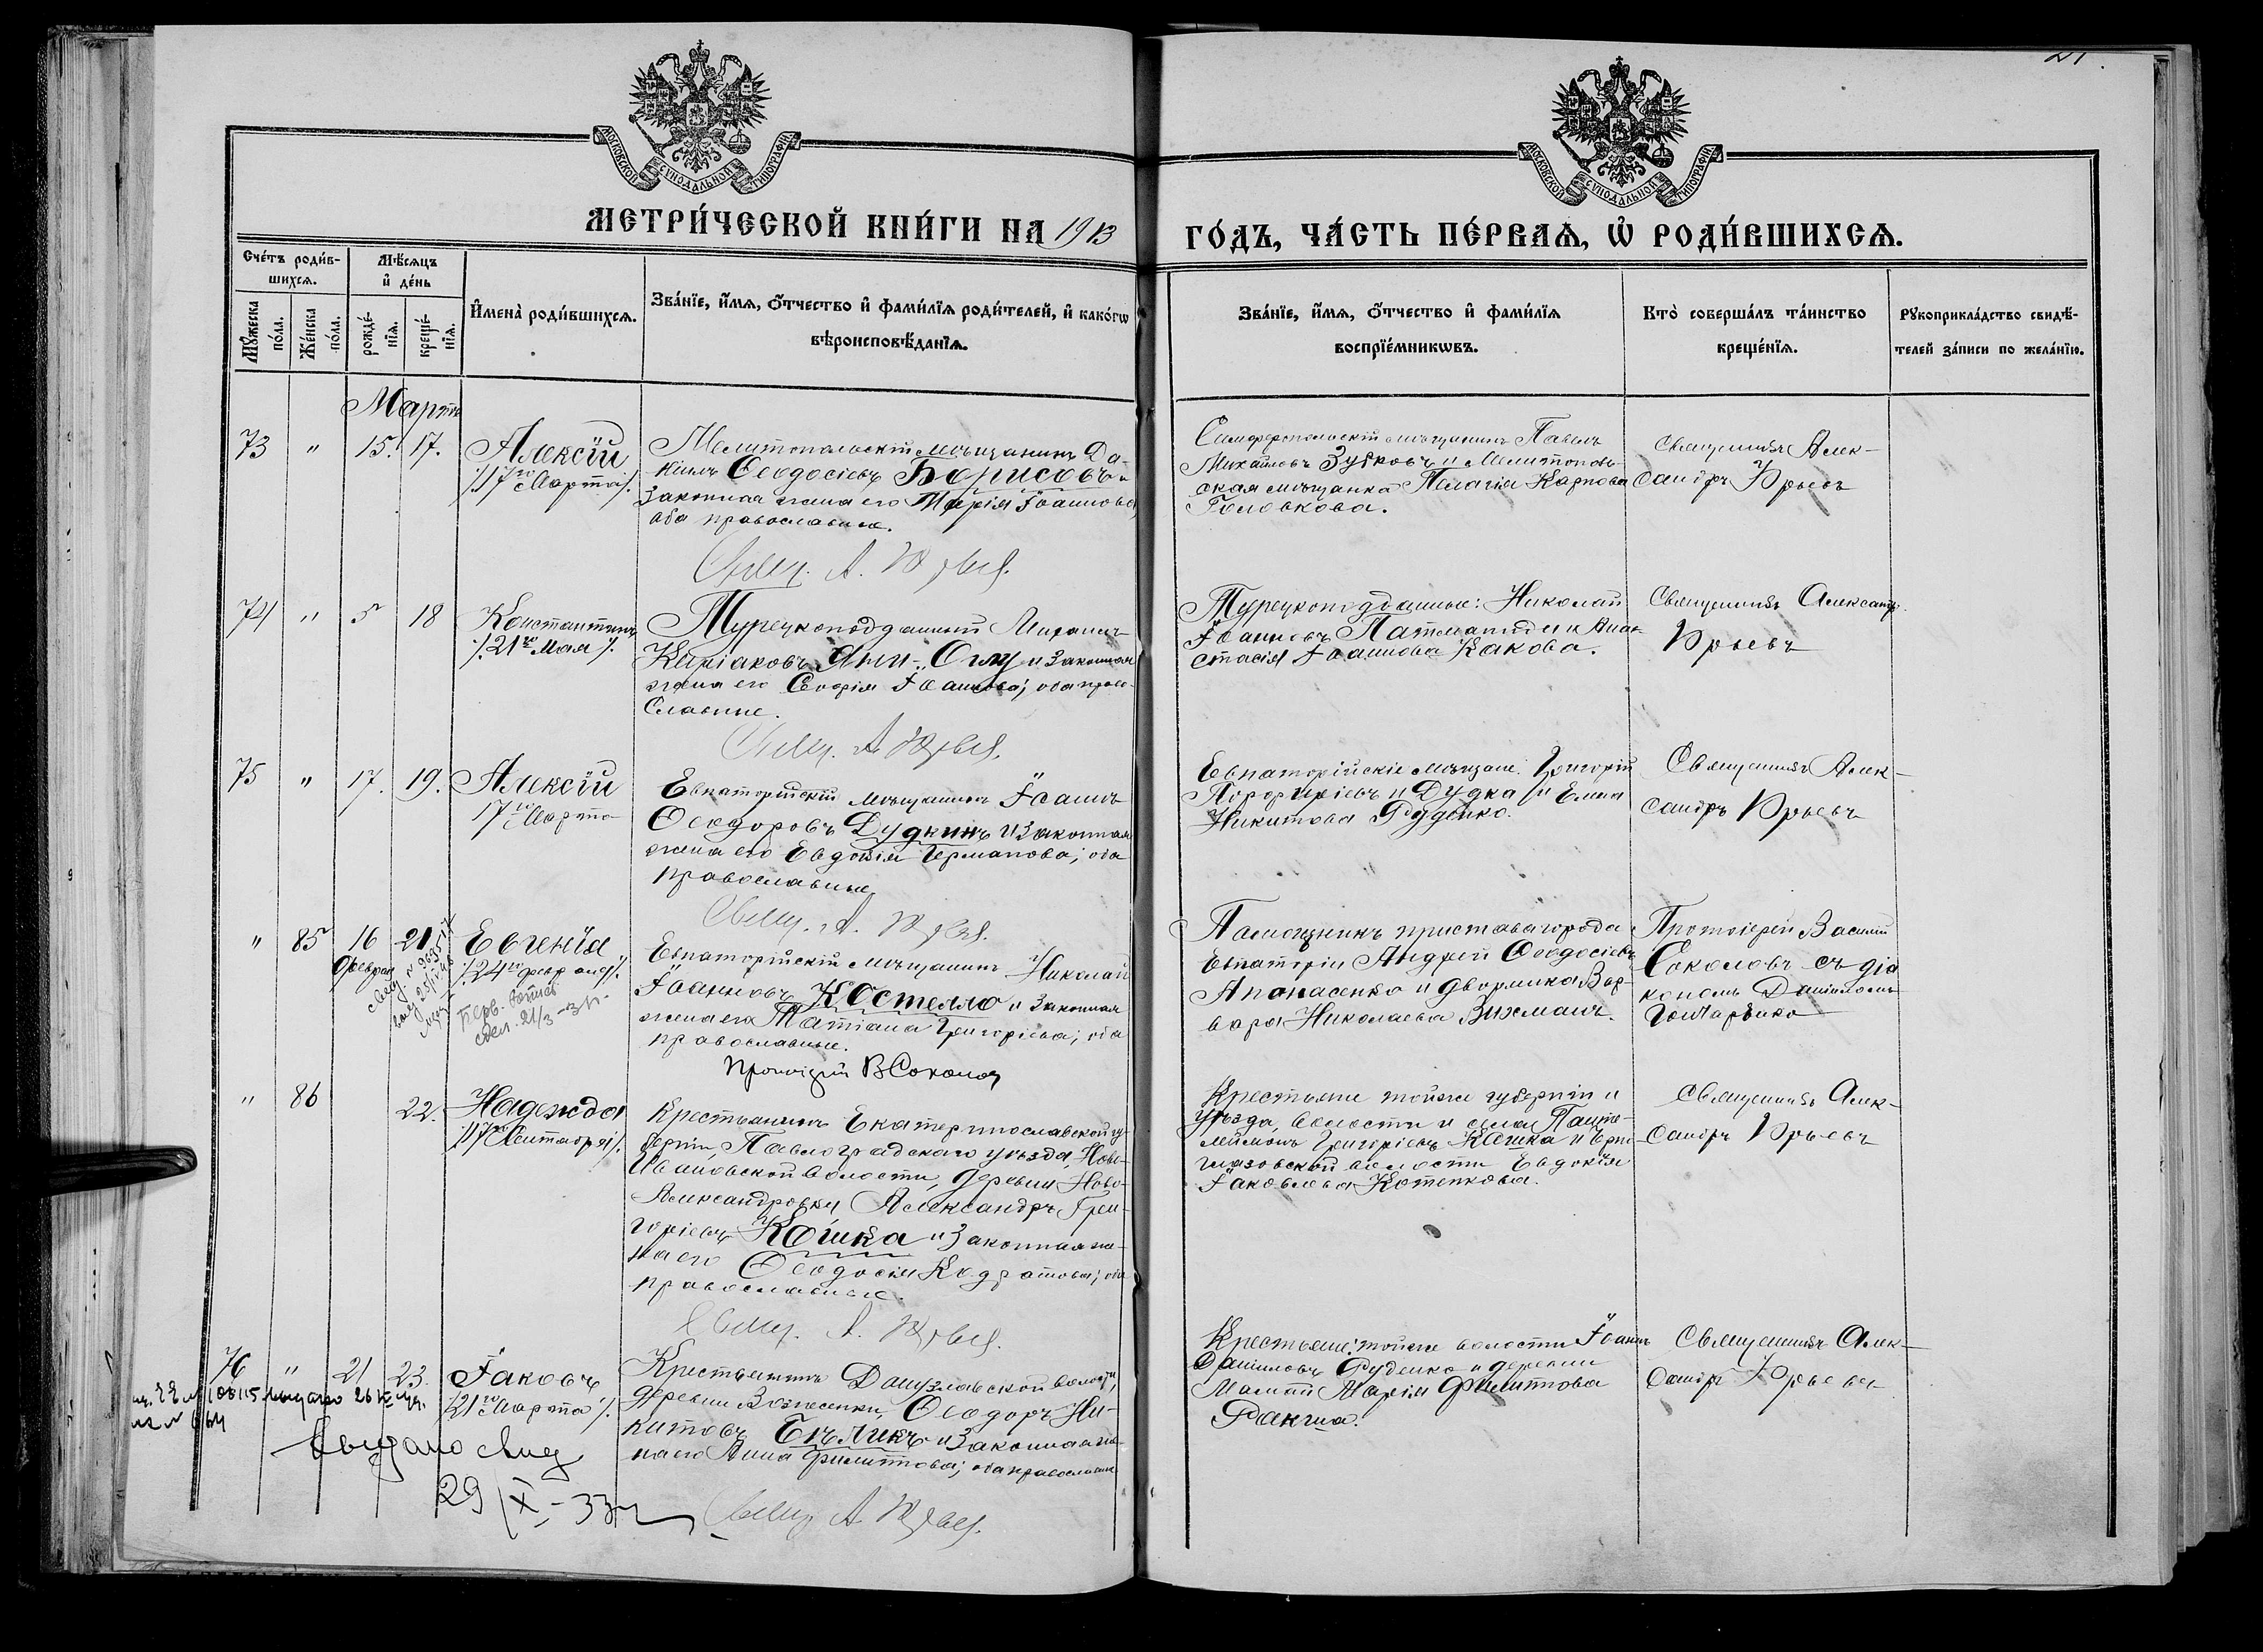 21
МОСКОВСКОЙ СѴНОДАЛЬНОЙ ТИПОГРАФІИ
МОСКОВСКОЙ СѴНОДАЛЬНОЙ ТИПОГРАФІИ
МЕТРИ́ЧЕСКОЙ КНИ́ГИ НА 1913
ГО́ДЪ, ЧА́СТЬ ПЕ́РВАѦ, Ѡ҆ РОДИ́ВШИХСѦ.
Сче́тъ роди́в-
шихсѧ.
Мꙋ́жеска по́ла.
Же́нска по́ла.
Мѣ́сѧцъ
и҆ де́нь
рожде́-
нїѧ.
креще́-
нїѧ.
И҆мена̀ роди́вшихсѧ.
Зва́нїе, и҆́мѧ, ѻ҆́тчество и҆ фами́лїѧ роди́телей, и҆ како́гѡ
вѣроисповѣ́данїѧ.
Зва́нїе, и҆́мѧ, ѻ҆́тчество и҆ фами́лїѧ
воспрїе́мникѡвъ.
Кто̀ соверша́лъ та́инство
креще́нїѧ.
Рꙋкоприкла́дство свидѣ́-
телей за́писи по жела́нїю.
Мартъ
73 " 15. 17. Алексій
17го Марта
Мелитопольскій мѣщанинъ Да-
ніилъ Ѳеодосіевъ Борисовъ и
законная жена его Марія Іоаннова,
оба православные.
Свящ. А. Юрьев.
Симферопольскій мѣщанинъ Павелъ
Михайловъ Зубковъ и Мелитополь-
ская мѣщанка Пелагія Карпова
Головкова.
Священникъ Алек-
сандръ Юрьевъ
74 " 5 18 Константинъ
21го Мая
Турецкоподданный
Киріаковъ и законная
жена его Софія Іоаннова; оба право-
славные.
Свящ. А. Юрьев.
Турецкоподданные: Николай
Іоанновъ и Ана-
стасія Іоаннова Какова.
Священникъ Александръ
Юрьевъ
75 " 17. 19. Алексій
17го Марта
Евпаторійскій мѣщанинъ Іоаннъ
Ѳеодоровъ Дудкинъ и законная
жена его Евдокія Германова; оба
православные.
Свящ. А. Юрьев.
Евпаторійскіе мѣщане: Григорій
Порфиріевъ Дудка и Елена
Никитова Руденко.
Священникъ Алек-
сандръ Юрьевъ
" 85 16 21 Евгенія
Февраля
24го февраля
Евпаторійскій мѣщанинъ Николай
Іоанновъ Костелло и законная
жена его Татіана Григоріева; оба
православные.
Протоіерей В Соколов
Помощникъ пристава города
Евпаторіи Андрей Ѳеодосіевъ
Апанасенко и дворянка Вар-
вара Николаева Вихманъ.
Протоіерей Василій
Соколовъ съ діа
кономъ Даніиломъ
Гончаренко
" 86 22. Надежда
17го Сентября
Крестьянинъ Екатеринославской гу-
берніи, Павлоградскаго уѣзда, Ново-
Ивановской волости, деревни Ново-
Александровки Александръ Гри-
горіевъ Кошка и законная же-
на его Ѳеодосія Кодратова; оба
православные.
Свящ. А. Юрьев.
Крестьяне тойже губерніи и
уѣзда, волости и села Панте-
леймонъ Григоріевъ Кошка и
волости Евдокія
Іаковлева Котенкова.
Священникъ Алек-
сандръ Юрьевъ
76 " 21 23. Іаковъ
21го Марта
Крестьянинъ Донузлавской волости,
деревни Вознесенки, Ѳеодоръ Ни-
китовъ Бѣликъ и законная же-
на его Анна Филиппова; оба православные
Свящ. А. Юрьев.
Крестьяне: тойже волости Іоаннъ
Даніиловъ Руденко и деревни
Марія Филиппова
Священникъ Алек-
сандръ Юрьевъ
выдано
29/X-33г